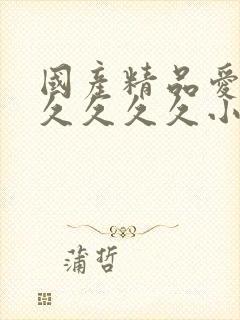 國產精品愛
久久久久小
蒲哲